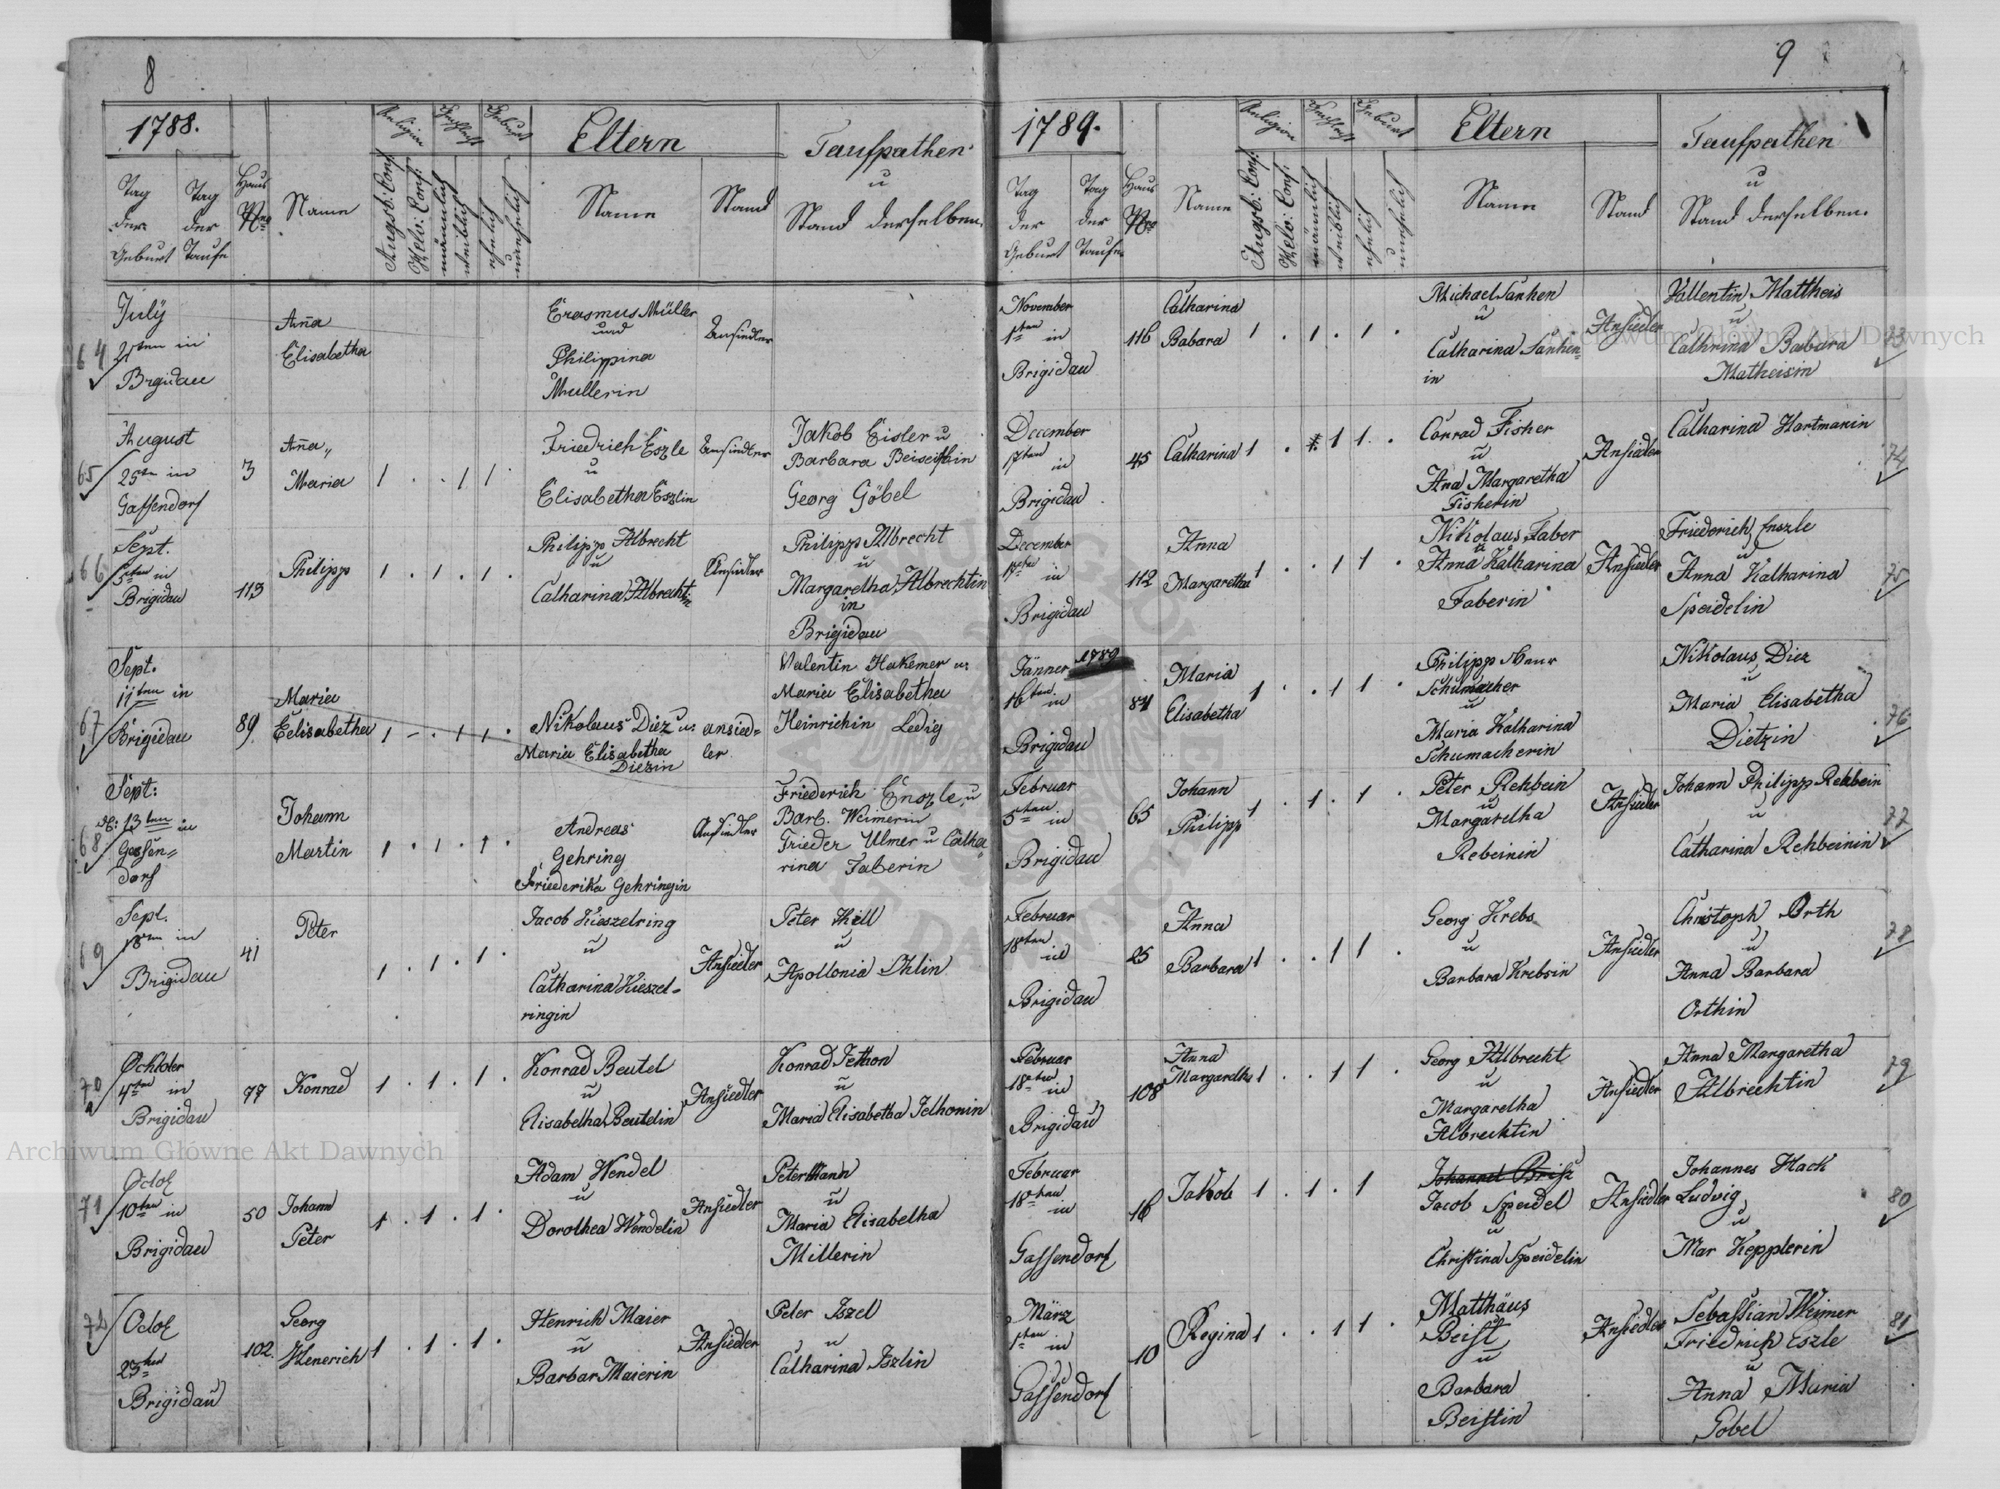 8
1788.
Religion
Geschlecht
Geburt
Eltern
Taufpathen
u
Stand derselben.
Tag
der
Geburt
Tag
der
Taufe
Haus
Nro
Name
Augsb: Conf:
Helv: Conf:
männlich
weiblich
ehelich
unehelich
Name
Stand
64
July
in
Brgidau
Aña
Elisabetha
Erasmus Müller
und
Philippina
Mullerin
Ansiedler
65
August
25ten in
Gassendorf
3
Aña
Maria
1 . . 1 1 .
Friedrich Eszle
u
Elisabetha Eszlin
Ansiedler
Jakob Eisler u
Barbara
Georg Göbel
66
Sept.
5ten in
Brigidau
113
Philipp
1 . 1 . 1 .
Philipp Albrecht
u
Catharina Albrechtin
Ansiedler
Philipp Albrecht
u
Margaretha Albrechtin
in
Brigidau
67
Sept.
11ten in
Brigidau
89
Maria
Eelisabetha
1 - . 1 1 .
Nikolaus Diez u:
Maria Elisabetha
Diezin
ansied=
ler
Valentin Hakemer u:
Maria Elisabetha
Heinrichin Ledig
68
Sept:
13ten in
Gassen=
dorf
Johann
Martin
1 . 1 . 1 .
Andreas
Gehring
Friederika Gehringin
Ansiedler
Friederich Enszle u
Barb. Weimerin
Frieder Ulmer u Catha
rina Faberin
69
Sept.
18ten in
Brigidau
41
Peter
1 . 1 . 1 .
Jacob Kieszelring
u
Catharina Kieszel-
ringin
Ansiedler
Peter Hill
u
Apollonia Ohlin
70
Ocktober
4ten in
Brigidau
77
Konrad
1 . 1 . 1 .
Konrad Beutel
u
Elisabetha Beutelin
Ansiedler
Konrad Jethon
u
Maria Elisabetha Jethonin
71
10ten in
Brigidau
50
Johann
Peter
1 . 1 . 1 .
Adam Wendel
u
Dorothea Wendelin
Ansiedler
Peter Mann
u
Maria Elisabetha
Millerin
72
Brigidau
102.
Georg
Henerich
1 . 1 . 1 .
Henrich Maier
u
Barbar Maierin
Ansiedler
Peter Iszel
u
Catharina Iszlin
9
1789.
Religion
Geschlecht
Geburt
Eltern
Taufpathen
u
Stand derselben.
Tag
der
Geburt
Tag
der
Taufe
Haus
Nro
Name
Augsb: Conf:
Helv: Conf:
männlich
weiblich
ehelich
unehelich
Name
Stand
November
1ten in
Brigidau
116
Catharina
Babara
1 . 1 . 1 .
Michael Sanken
u
Catharina Sanken=
in
Ansiedler
Vallentin Mattheis
u
Cathrina Barbara
Matheisin
73
December
17ten in
Brigidau
45
Catharina
1 . 1 1 .
Conrad Fisher
u
Ana Margaretha
Fisherin
Ansiedler
Catharina Hartmanin
74
December
in
Brigidau
112
Anna
Margaretha
1 . . 1 1 .
Nikolaus Faber
u
Anna Katharina
Faberin
Ansiedler
Friederich Enszle
u
Anna Katharina
Speidelin
75
Jänner 1789
16ten in
Brigidau
84
Maria
Elisabetha
1 . . 1 1 .
Philipp
Schumacher
u
Maria Katharina
Schumacherin
Nikolaus Diez
u
Maria Elisabetha
Dietzin
76
Februar
5ten in
Brigidau
65
Johann
Philipp
1 . 1 . 1 .
Peter Rehbein
u
Margaretha
Rebeinin
Ansiedler
Johann Philipp Rehbein
u
Catharina Rehbeinin
77
Februar
18ten
in
Brigidau
25
Anna
Barbara
1 . . 1 1 .
Georg Krebs
u
Barbara Krebsin
Ansiedler
Christoph Orth
u
Anna Barbara
Orthin
78
Februar
18ten
in
Brigidau
108
Anna
Margaretha
1 . . 1 1 .
Georg Albrecht
u
Margaretha
Albrechtin
Ansiedler
Anna Margaretha
Albrechtin
79
Februar
18ten
in
Gassendorf
16
Jakob
1 . 1 . 1
Jacob Speidel
u
Christina Speidelin
Ansiedler
Johannes Hack
Ludwig
u
Mar Kepplerin
80
März
1ten in
Gassendorf
10
Regina
1 . . 1 1 .
Matthäus
Beist
u
Barbara
Beistin
Ansiedler
Sebassian Weimer
Friedrich Eszle
u
Anna Maria
Gobel
81
Archiwum Główne Akt Dawnych
Archiwum Główne Akt Dawnych